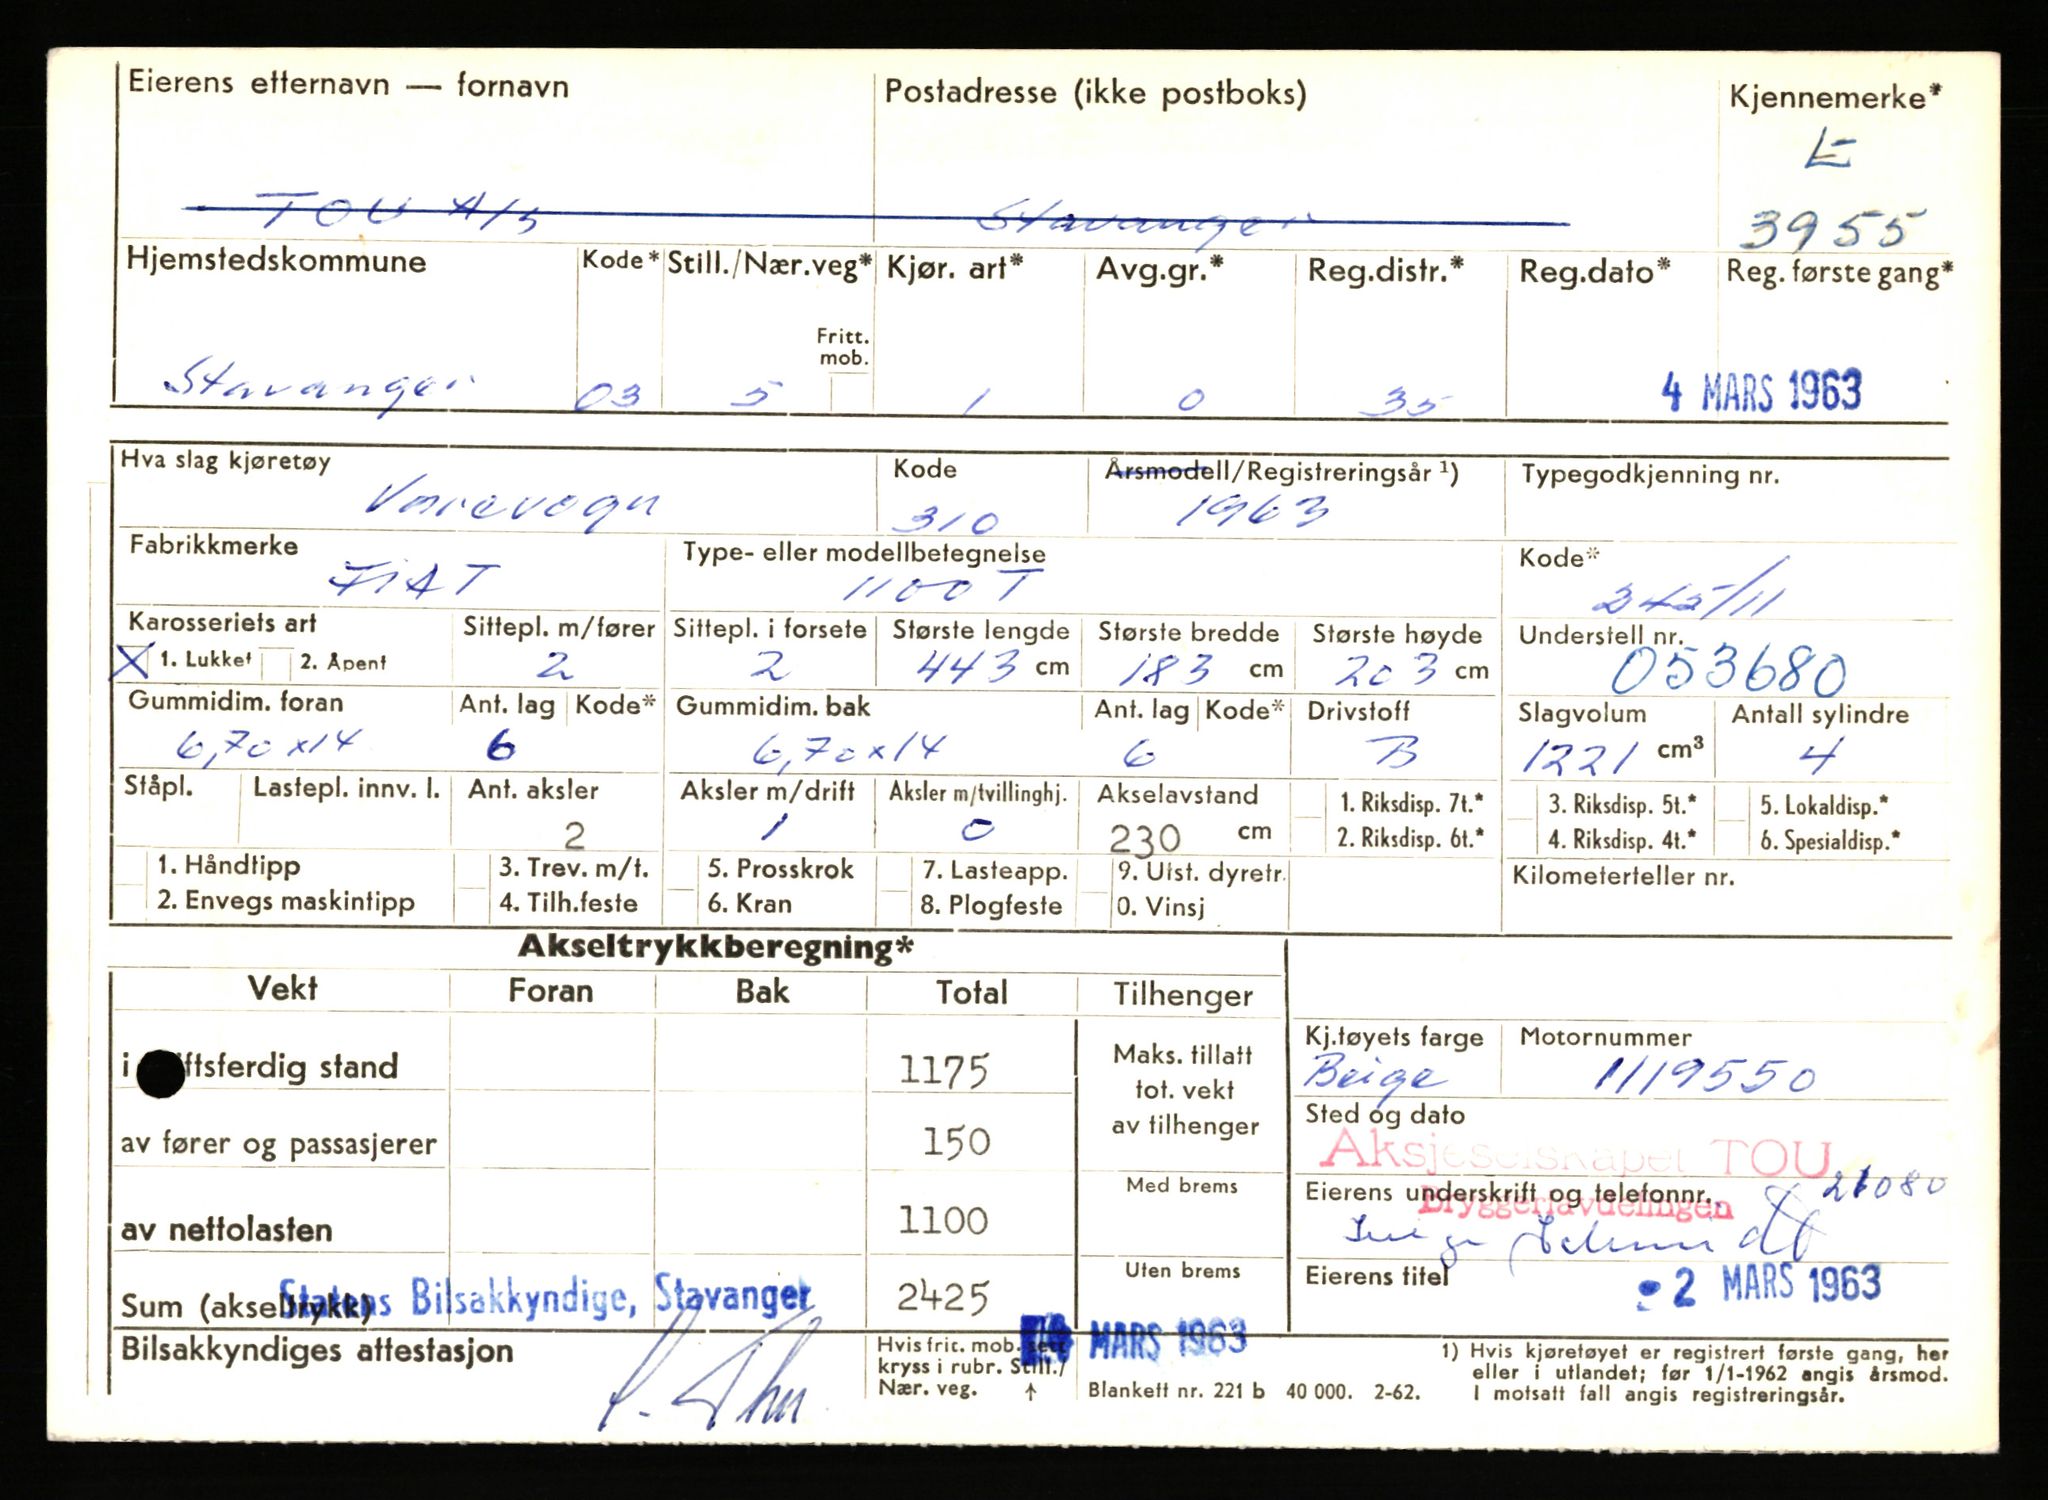 Eierens etternavn — fornavn Postadresse (ikke postboks) Kjennemerke*
L
TOU A/S Stavanger 3955
Hjemstedskommune Kode* Still./Nær.veg* Kjør. art* Avg.gr.* Reg.distr.* Reg.dato* Reg. første gang*
Fritt.
mob.
Stavanger 03 5 1 0 35 4 MARS 1963
Hva slag kjøretøy Kode Årsmodell/Registreringsår ¹) Typegodkjenning nr.
Varevogn 310 1963
Fabrikkmerke Type- eller modellbetegnelse Kode*
FIAT 1100 T 245/11
Karosseriets art Sittepl. m/fører Sittepl. i forsete Største lengde Største bredde Største høyde Understell nr.
X 1. Lukket 2. Åpent 2 2 443 cm 183 cm 203 cm 053680
Gummidim. foran Ant. lag Kode* Gummidim. bak Ant. lag Kode* Drivstoff Slagvolum Antall sylindre
6,70x14 6 6,70x14 6 B 1221 cm³ 4
Ståpl. Lastepl. innv. l. Ant. aksler Aksler m/drift Aksler m/tvillinghj. Akselavstand 1. Riksdisp. 7t.* 3. Riksdisp. 5t.* 5. Lokaldisp.*
2 1 0 230 cm 2. Riksdisp. 6t.* 4. Riksdisp. 4t.* 6. Spesialdisp.*
1. Håndtipp 3. Trev. m/t. 5. Prosskrok 7. Lasteapp. 9. Utst. dyretr. Kilometerteller nr.
2. Envegs maskintipp 4. Tilh.feste 6. Kran 8. Plogfeste 0. Vinsj
Akseltrykkberegning*
Vekt Foran Bak Total Tilhenger
Kj.tøyets farge Motornummer
i ftsferdig stand 1175 Maks. tillatt
tot. vekt
av tilhenger
Beige 1119550
Sted og dato
av fører og passasjerer 150
Aksjeselskapet TOU
Med brems
Eierens underskrift og telefonnr. 21080
Bryggeriavdelingen
av nettolasten 1100
Uten brems
Eierens titel
2 MARS 1963
Sum (akseltrykk) Statens Bilsakkyndige, Stavanger 2425
Bilsakkyndiges attestasjon
Hvis fric. mob. sett
kryss i rubr. Still./
Nær. veg. ↑
MARS 1963
Blankett nr. 221 b 40 000. 2-62.
1) Hvis kjøretøyet er registrert første gang, her
eller i utlandet; før 1/1-1962 angis årsmod.
I motsatt fall angis registreringsår.